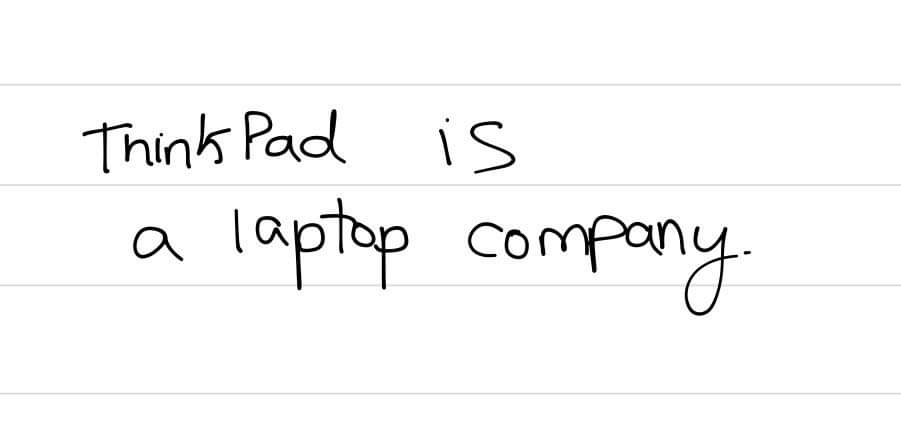 ThinkPad is
a laptop company.